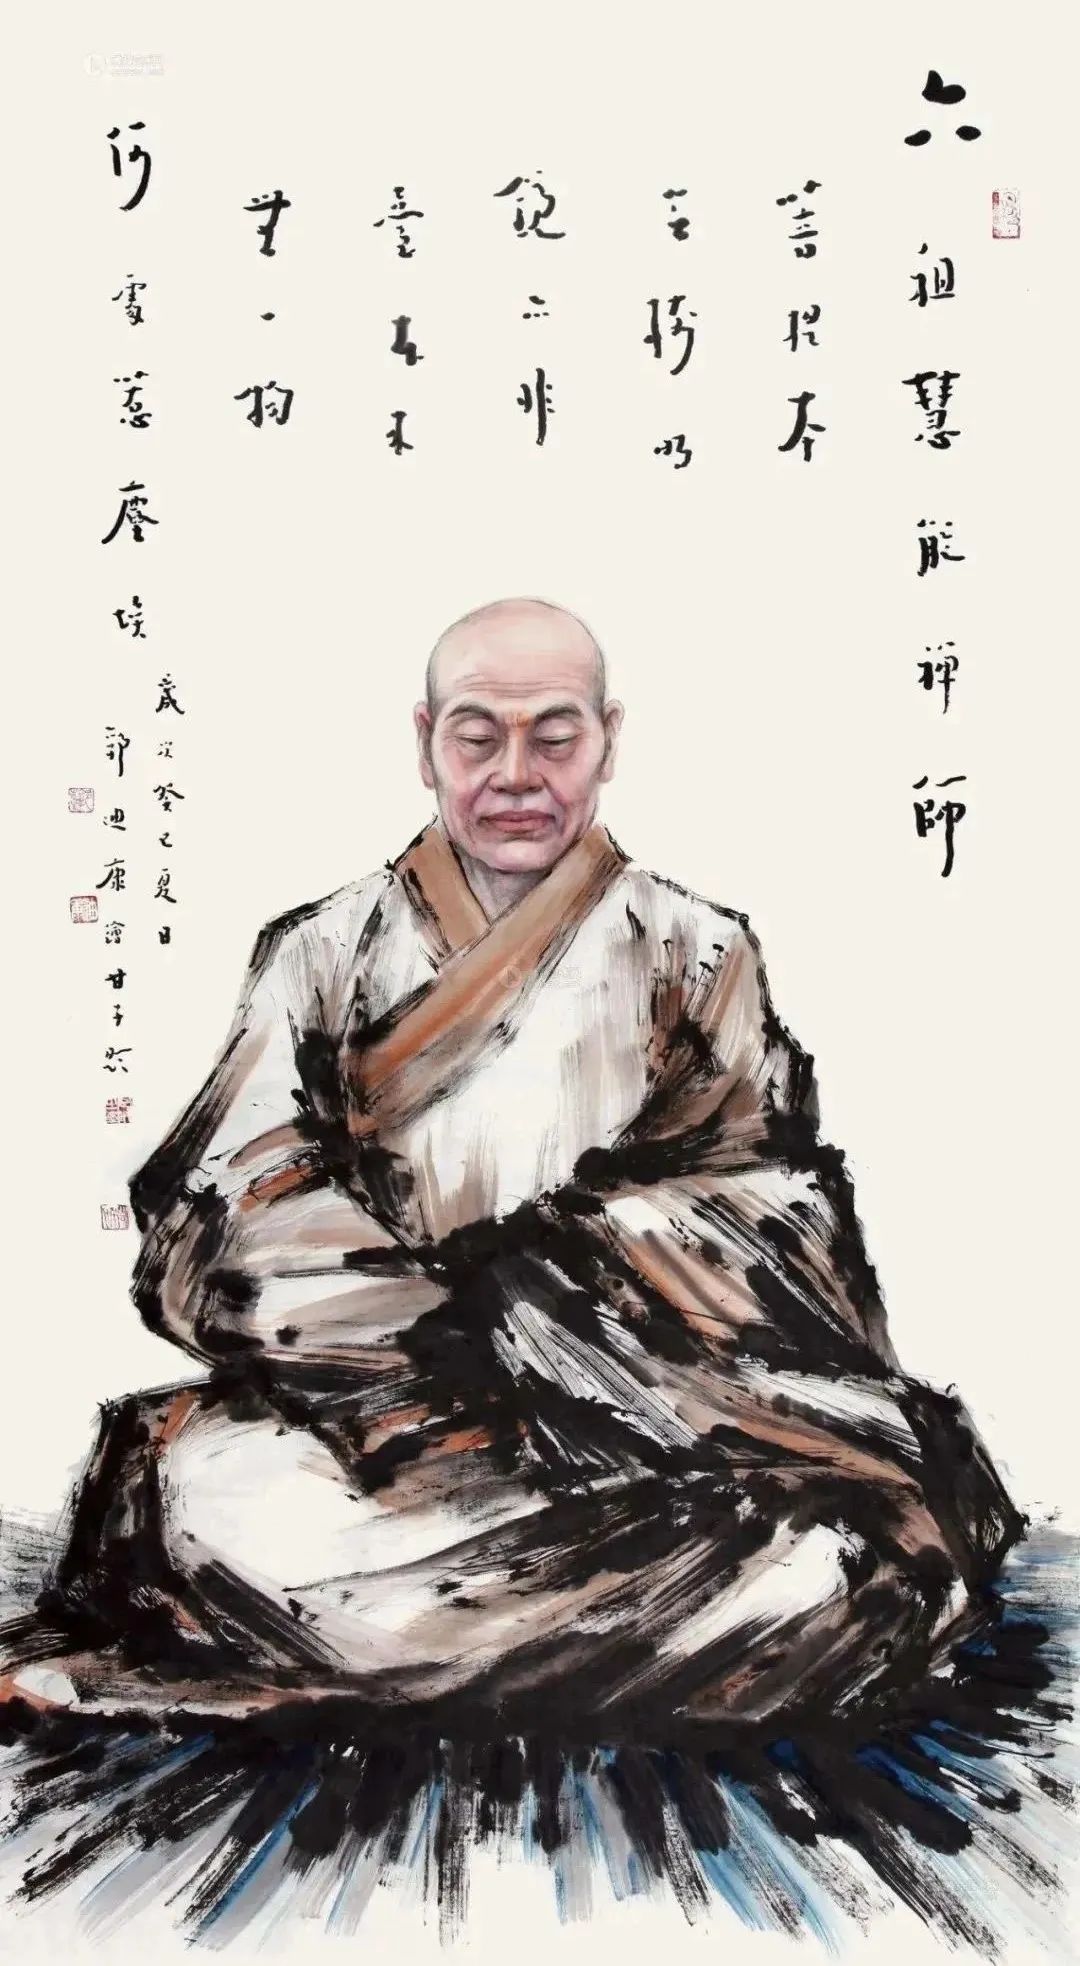 六祖慧能禪師
菩提本
無樹明
鏡亦非
臺本来
無一物
何處惹塵埃
歲次癸巳夏日
郭迪康繪甘子